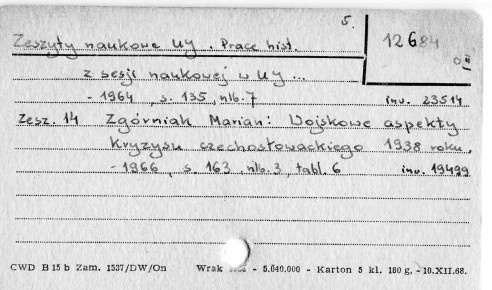 5.
Zeszyty naukowe UJ. Prace hist.
12684
z sesji naukowej w UJ ...
- 1964, s. 135, nlb. 7 inw. 23514
Zesz. 14 Zgórniak Marian: Wojskowe aspekty
kryzysu czechosłowackiego 1938 roku.
- 1966, s. 163, nlb. 3, tabl. 6 inw. 19499
CWD B 15 b Zam. 1537/DW/On Wrak - 5.040.000 - Karton 5 kl. 180 g, - 10.XII.68.